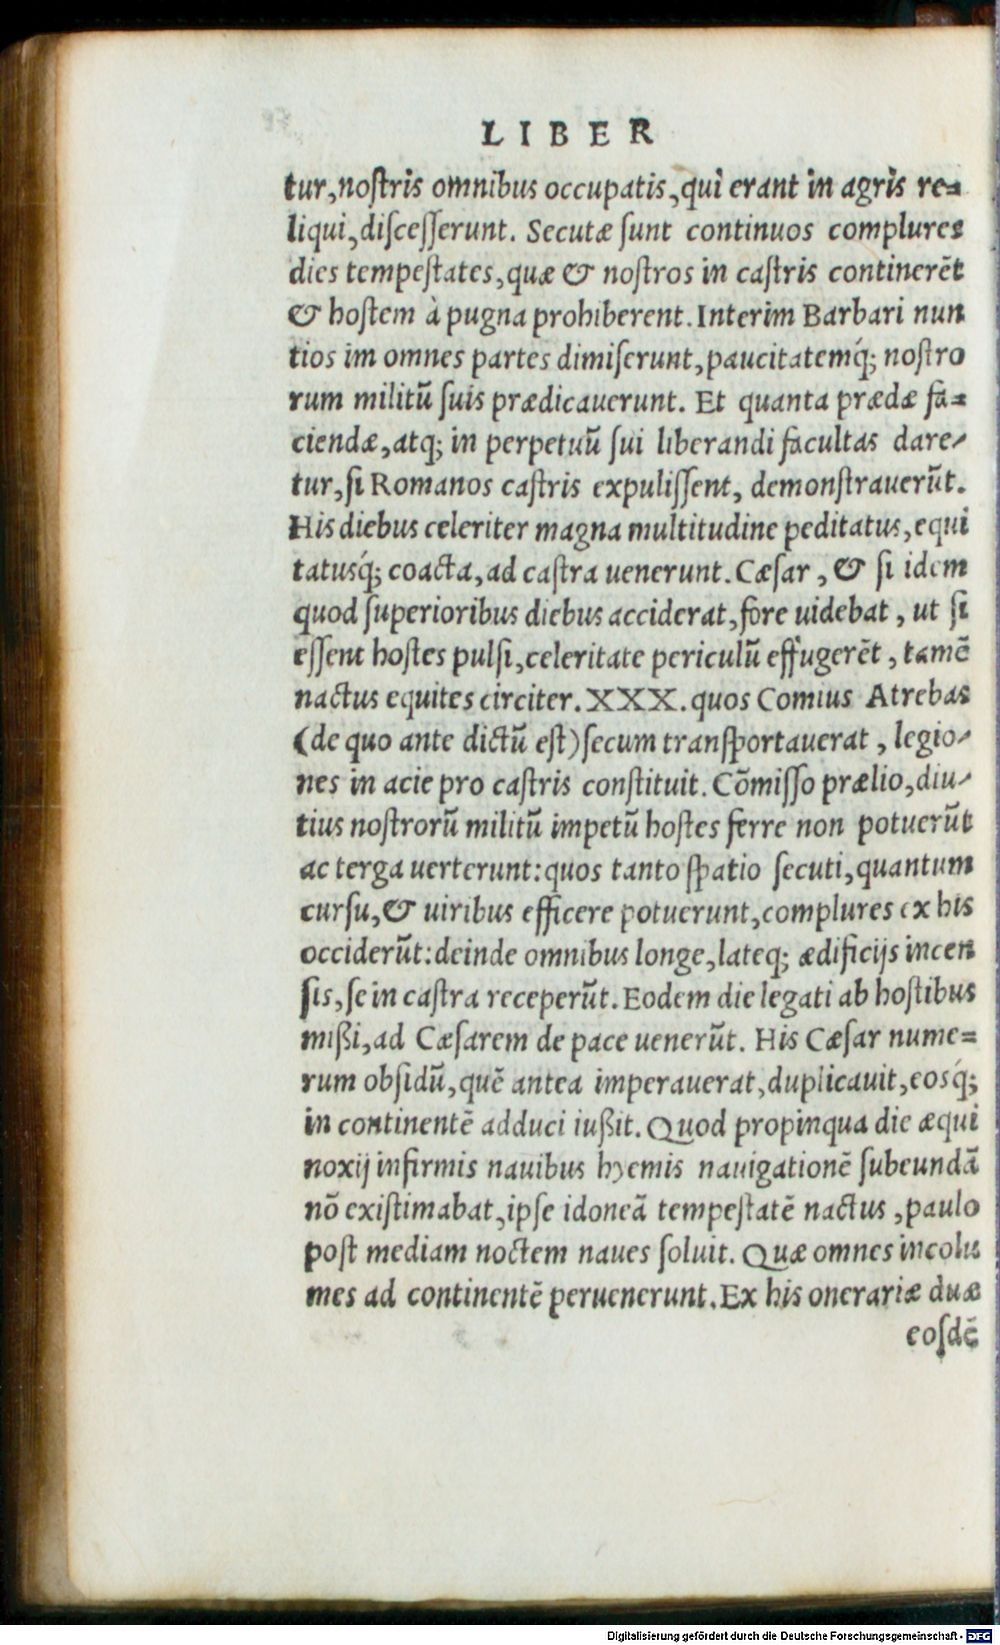 LIBER
tur, noſtris omnibus occupatis, qui erant in agris re=
liqui, diſceſſerunt. Secutæ ſunt continuos complures
dies tempeſtates, quæ & noſtros in caſtris continerēt
& hoſtem à pugna prohiberent. Interim Barbari nun
tios im omnes partes dimiſerunt, paucitatemq́; noſtro
rum militū ſuis prædicauerunt. Et quanta prædæ fa=
ciendæ, atq; in perpetuū ſui liberandi facultas dare-
tur, ſi Romanos caſtris expuliſſent, demonſtrauerūt.
His diebus celeriter magna multitudine peditatus, equi
tatusq́; coacta, ad caſtra uenerunt. Cæſar, & ſi idem
quod ſuperioribus diebus acciderat, fore uidebat, ut ſi
eſſent hoſtes pulſi, celeritate periculū effugerēt, tamē
nactus equites circiter. XXX. quos Comius Atrebas
(de quo ante dictū eſt) ſecum tranſportauerat, legio-
nes in acie pro caſtris conſtituit. Cōmiſſo prælio, diu-
tius noſtrorū militū impetū hoſtes ferre non potuerūt
ac terga uerterunt: quos tanto ſpatio ſecuti, quantum
curſu, & uiribus efficere potuerunt, complures ex his
occiderūt: deinde omnibus longe, lateq; ædificijs incen
ſis, ſe in caſtra receperūt. Eodem die legati ab hoſtibus
mißi, ad Cæſarem de pace uenerūt. His Cæſar nume=
rum obſidū, quē antea imperauerat, duplicauit, eosq́;
in continentē adduci iußit. Quod propinqua die æqui
noxij infirmis nauibus hyemis nauigationē ſubeundā
nō exiſtimabat, ipſe idoneā tempeſtatē nactus, paulo
poſt mediam noctem naues ſoluit. Quæ omnes incolu
mes ad continentē peruenerunt. Ex his onerariæ duæ
eoſdē
Digitalisierung gefördert durch die Deutsche Forschungsgemeinschaft - DFG